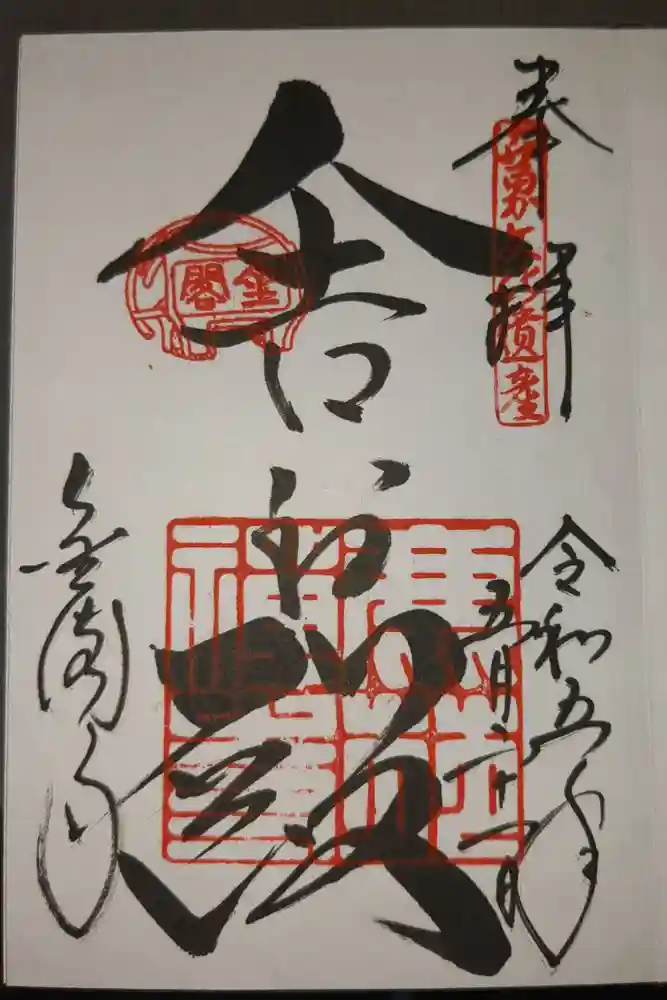 奉拝
世界文化遺産
令和五年
五月二十一日
舎利殿
金閣
金閣寺